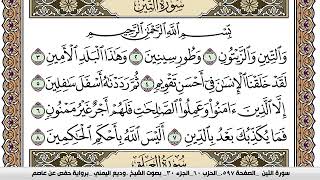 سورة التين
بِسْمِ اللَّهِ الرَّحْمَٰنِ الرَّحِيمِ
وَالتِّينِ وَالزَّيْتُونِ ١ وَطُورِ سِينِينَ ٢ وَهَٰذَا الْبَلَدِ الْأَمِينِ ٣
لَقَدْ خَلَقْنَا الْإِنسَٰنَ فِي أَحْسَنِ تَقْوِيمٍ ٤ ثُمَّ رَدَدْنَٰهُ أَسْفَلَ سَٰفِلِينَ ٥
إِلَّا الَّذِينَ ءَامَنُوا وَعَمِلُوا الصَّٰلِحَٰتِ فَلَهُمْ أَجْرٌ غَيْرُ مَمْنُونٍ ٦
فَمَا يُكَذِّبُكَ بَعْدُ بِالدِّينِ ٧ أَلَيْسَ اللَّهُ بِأَحْكَمِ الْحَٰكِمِينَ ٨
سورة العلق
سورة التين _الصفحة ٥٩٧_ الحزب ٦٠_ الجزء ٣٠_ بصوت الشيخ_ وديع اليمني _برواية حفص عن عاصم